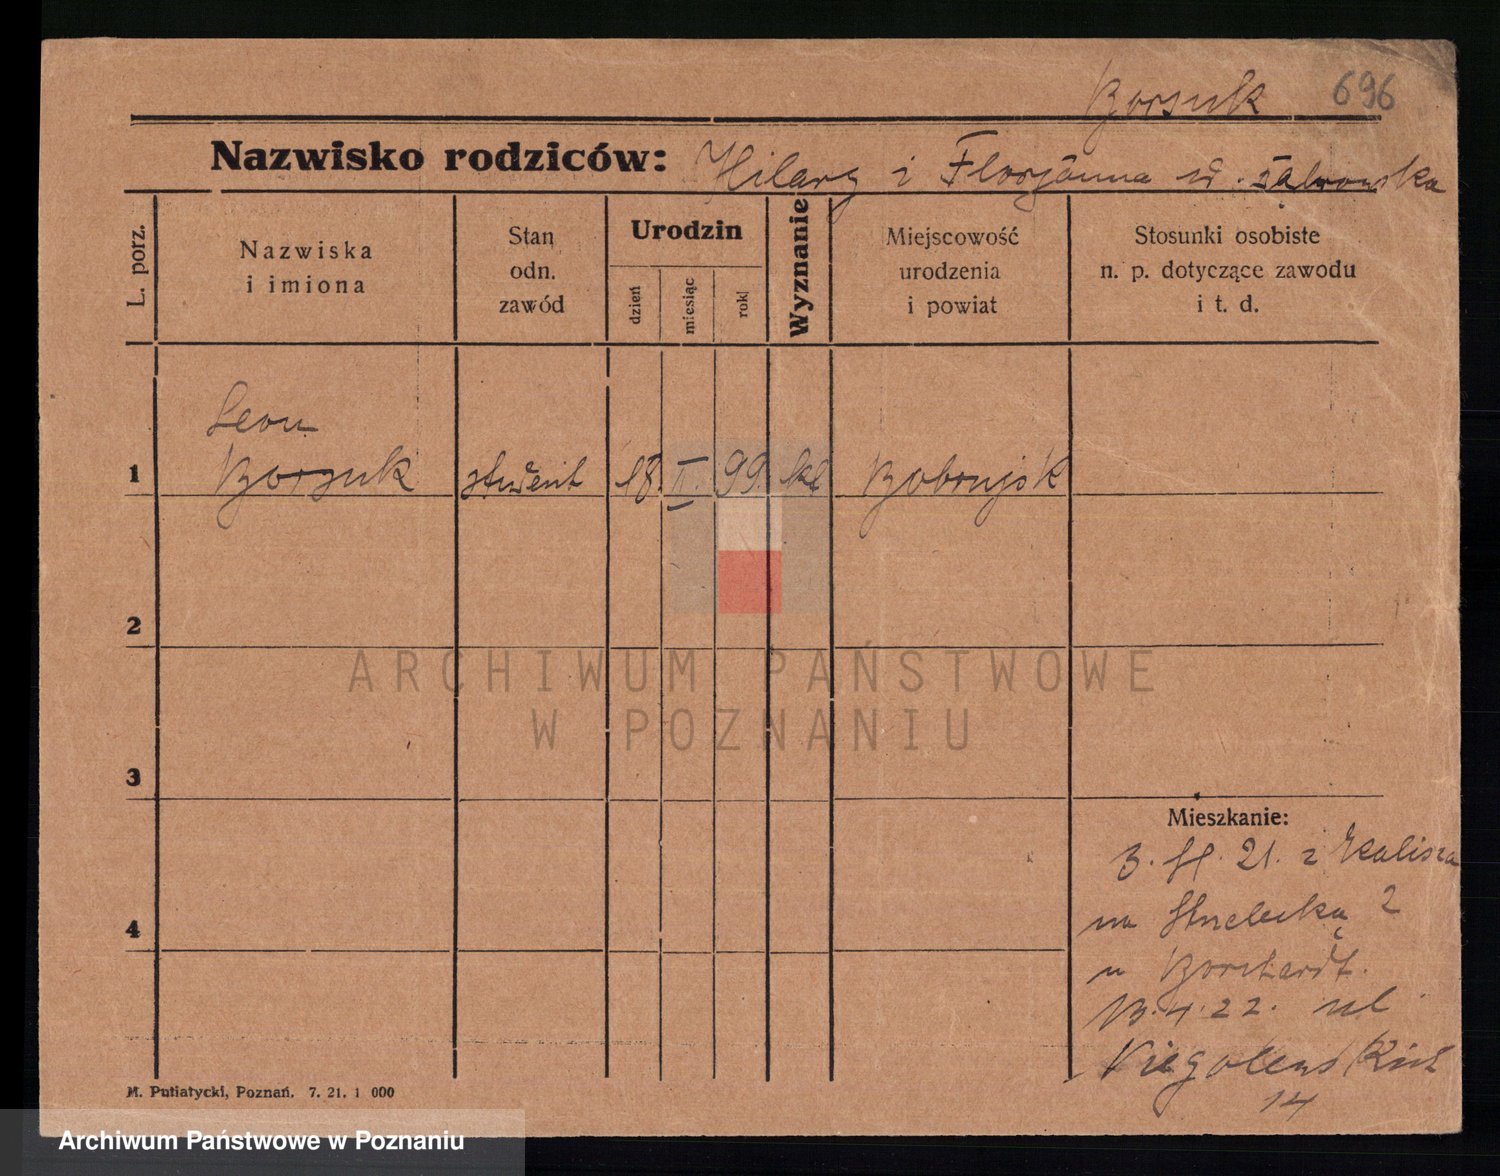 Borsuk 696
Nazwisko rodziców: Hilary i Florjanna
L. porz.
Nazwiska
i imiona
Stan
odn.
zawód
Urodzin
dzień
miesiąc
rok
Wyznanie
Miejscowość
urodzenia
i powiat
Stosunki osobiste
n. p. dotyczące zawodu
i t. d.
Leon
1 Borsuk student 18. II. 99. kl Bobrujsk
2
3
4
Mieszkanie:
21. z Kalisza
na 2
u Borchardt.
4. 22. ul
14
M. Putiatycki, Poznań. 7. 21. 1 000
ARCHIWUM PAŃSTWOWE
W POZNANIU
Archiwum Państwowe w Poznaniu